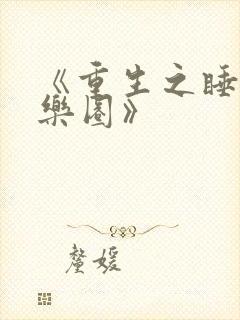 《重生之睡
樂園》
釐媛